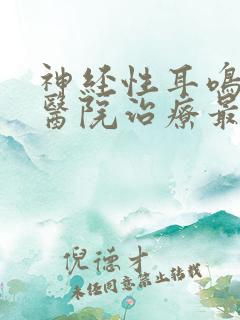 神经性耳鸣
醫院治療最
倪德才
未经同意禁止转载